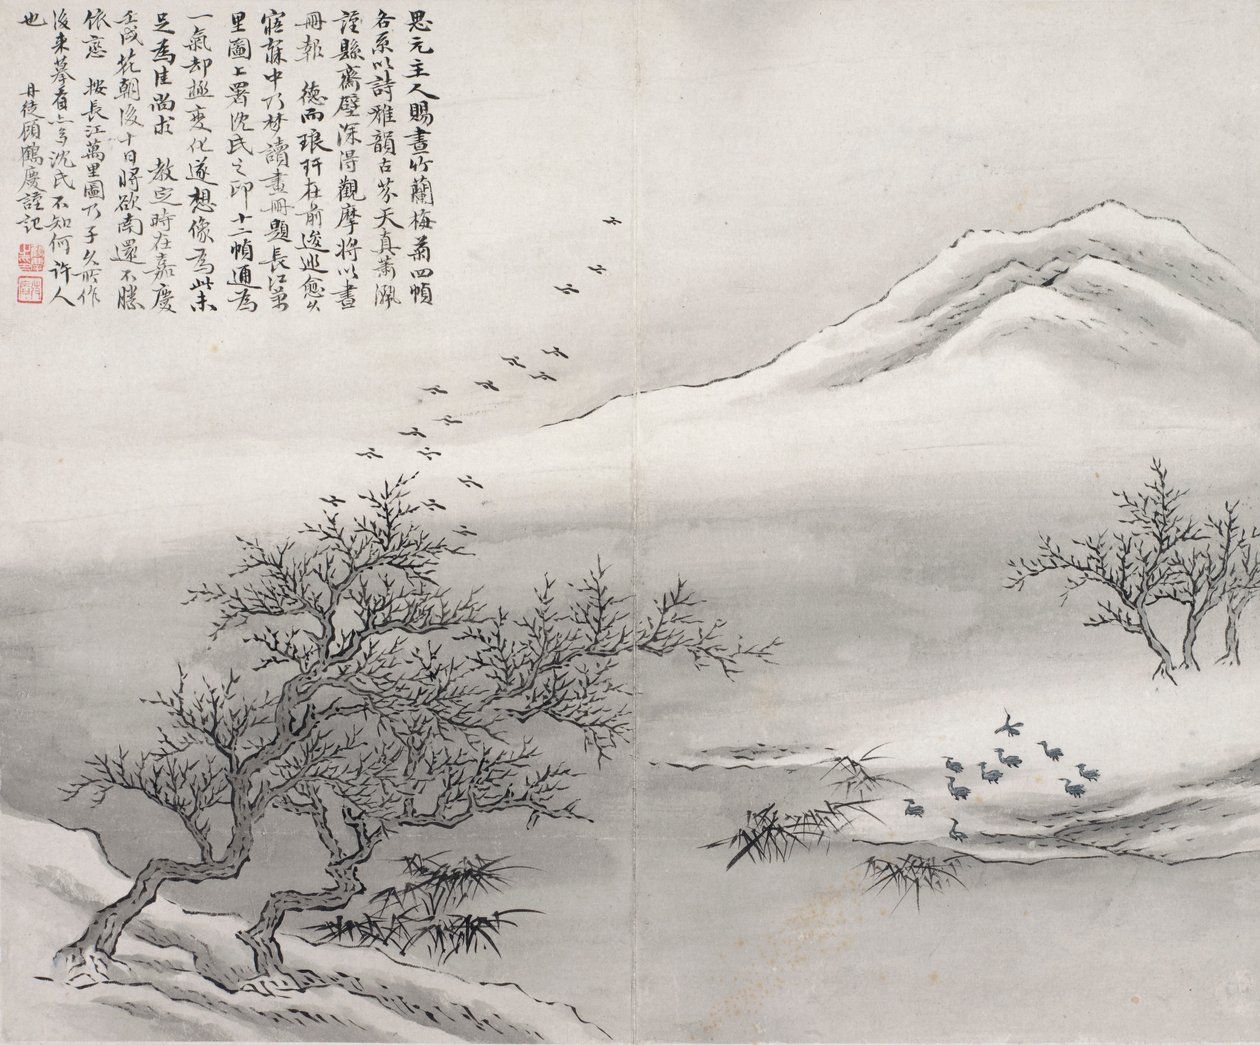 思元主人賜畫竹蘭梅菊四幀
各系以詩雅韻古芬天真蕭洒
謹縣齋壁深得觀摩將以畫
冊報 德而琅玕在前逡巡愈久
寤寐中乃夢讀畫冊題長江萬
里圖上署沈氏之印十二幀通為
一氣却極變化遂想像為此未
足為佳尚求 教定時在嘉慶
壬戌花朝後十日將欲南還不勝
依戀 按長江萬里圖乃子久所作
後來摹者亦多沈氏不知何許人
也 丹徒顧鶴慶謹記